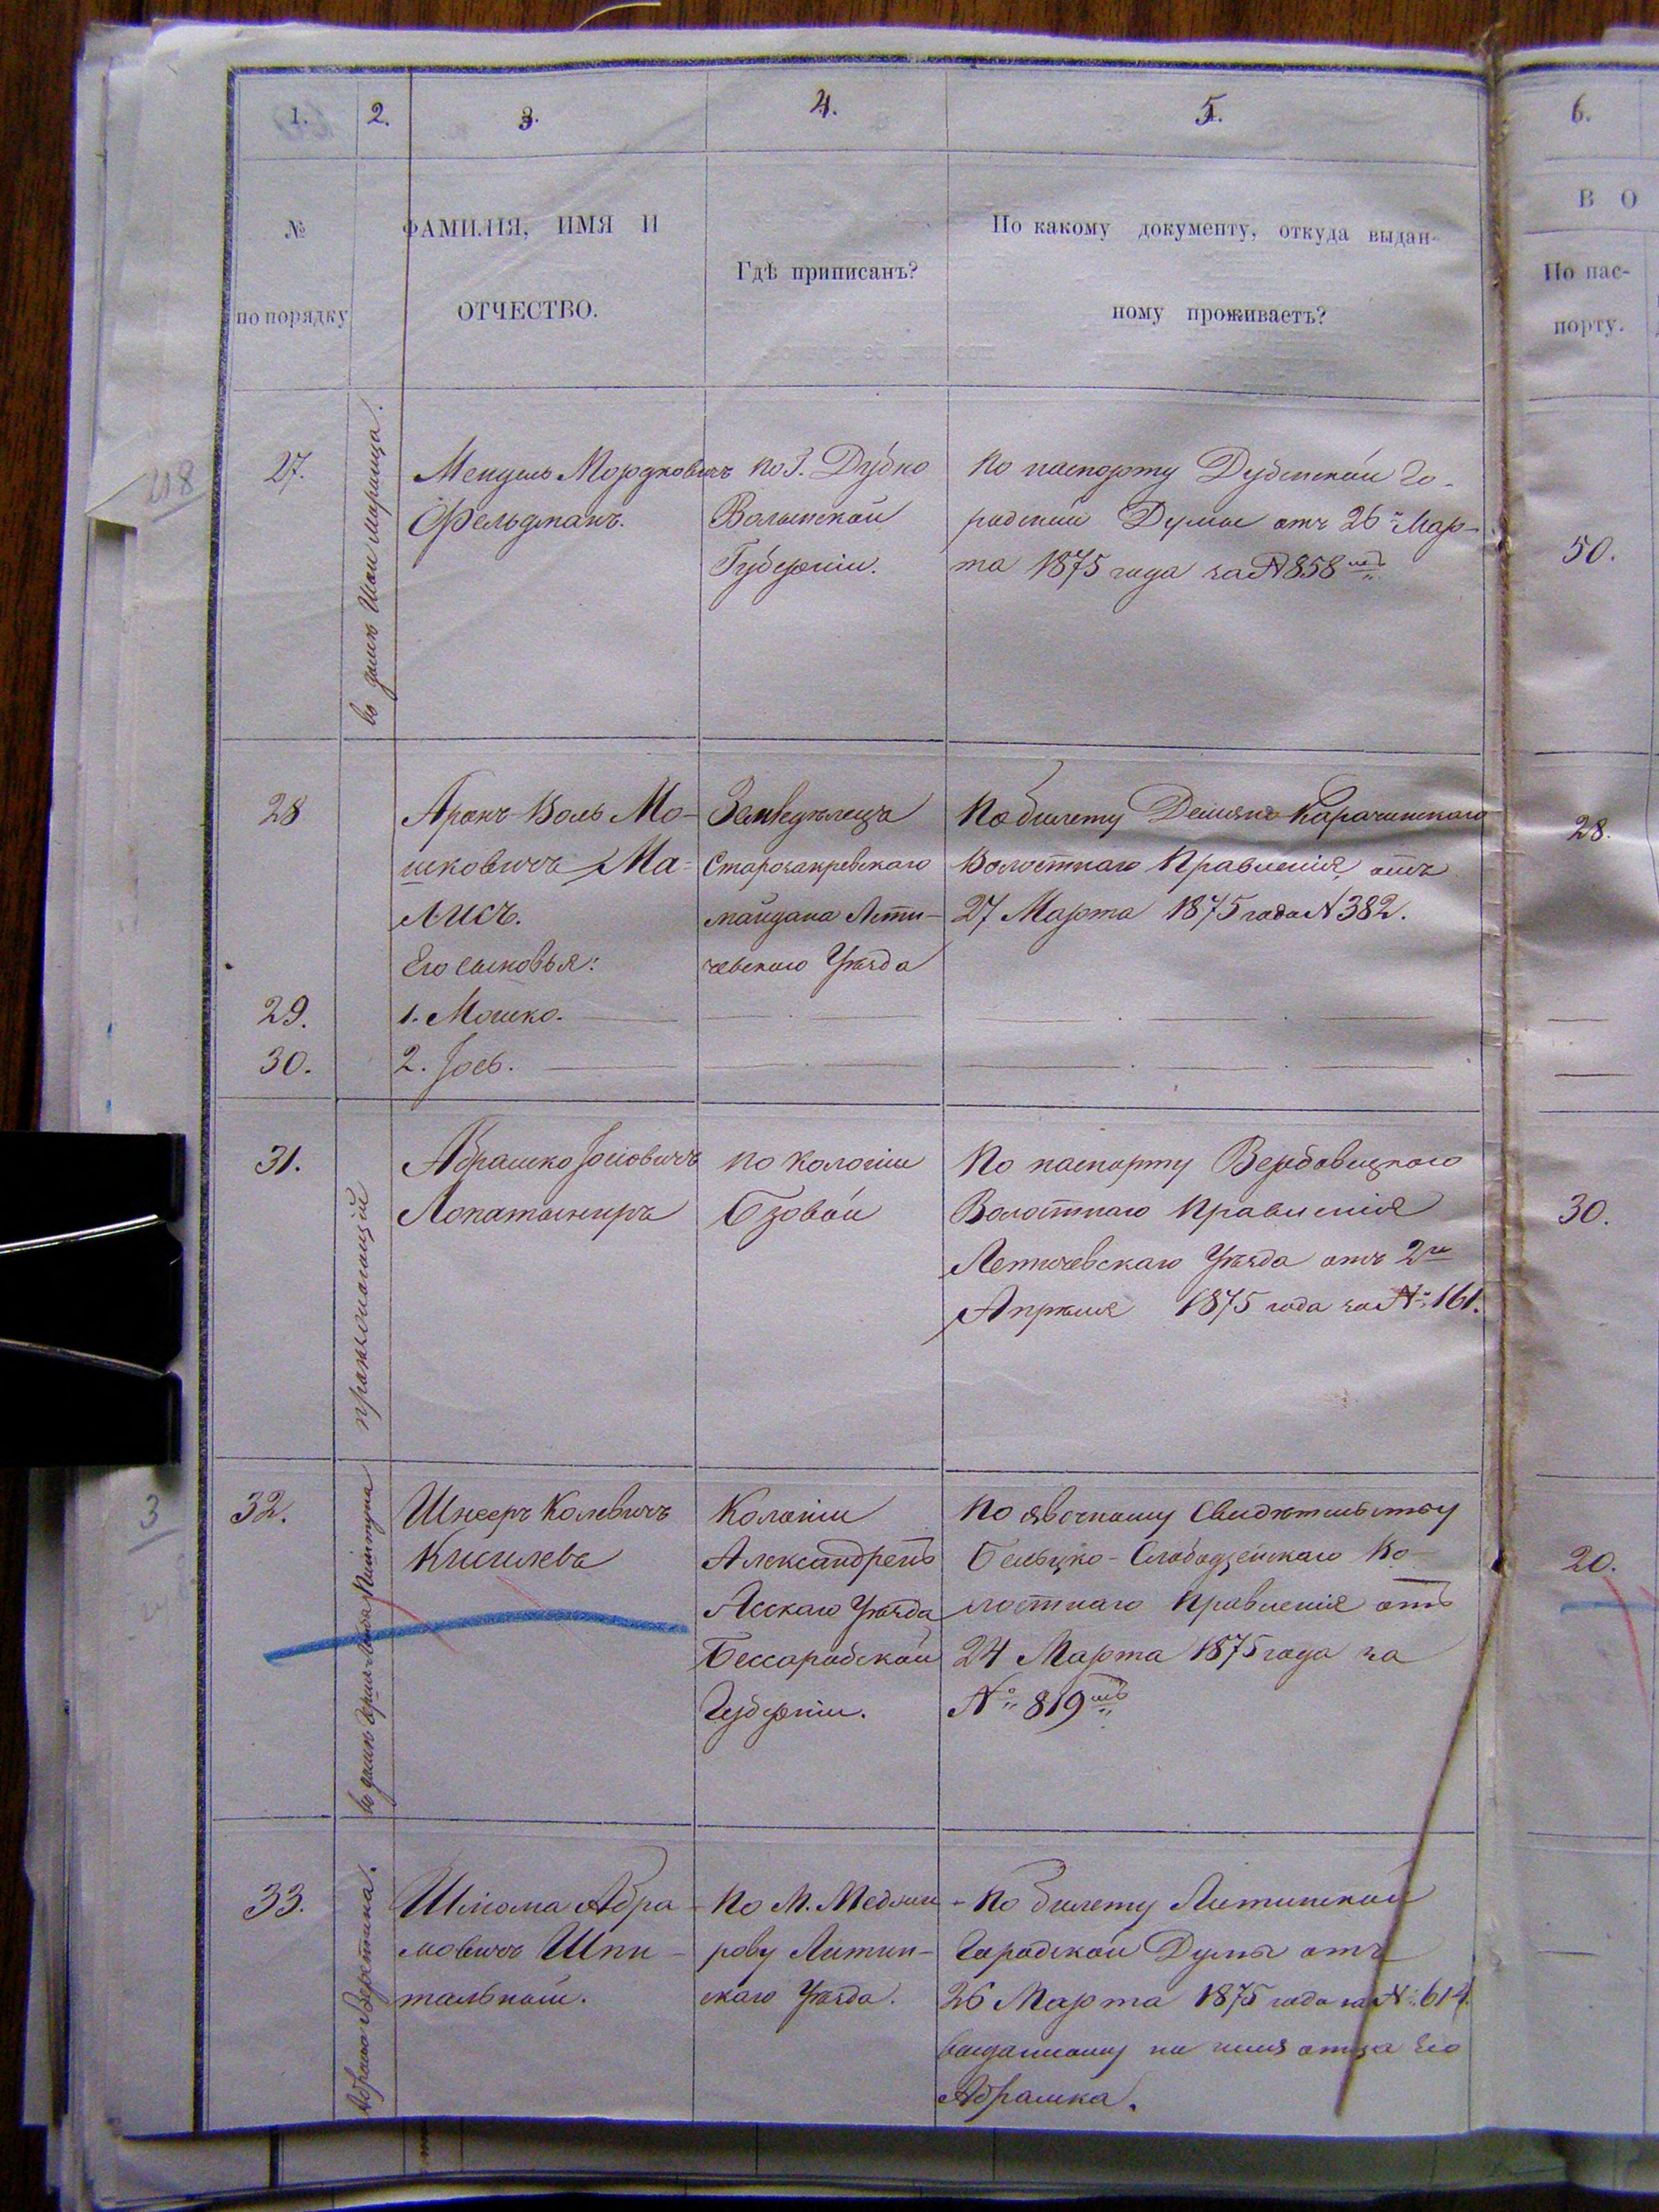 1. 2. 3. 4. 5. 6.
№
по порядку
ФАМИЛІЯ, ИМЯ И
ОТЧЕСТВО.
Гдѣ приписанъ?
По какому документу, откуда выдан-
ному проживаетъ?
В О
По пас-
порту.
27.
въ домѣ
Мендель Мордковичъ
Фельдманъ.
по г. Дубно
Волынской
Губерніи.
По паспорту Дубенской Го-
родской Думы отъ 26 Мар-
та 1875 года за № 858
50.
28
Аронъ Волъ Мо-
шковичъ Ма-
лисъ.
Его сыновья:
Земледѣлецъ
Старозакревскаго
майдана Лети-
чевскаго Уѣзда
По билету Деляно-Карачинскаго
Волостнаго Правленія, отъ
27 Марта 1875 года № 382.
28.
29.
1. Мошко.
30.
2. Іось.
31.
Абрамко Іосіовичъ
Лопатыниръ
по колоніи
Бзовой
По паспорту Вербовецкаго
Волостнаго Правленія
Летичевскаго Уѣзда отъ 2го
Апрѣля 1875 года за № 161.
30.
32.
въ домѣ
Шнееръ Колевичъ
Кисилевъ
Колоніи
Александренъ
Ясскаго Уѣзда
Бессарабской
Губерніи.
По явочному Свидѣтельству
Бельцко-Слободзейскаго Во-
лостнаго Правленія отъ
24 Марта 1875 года за
№ 819
20.
33.
Шліома Абра-
мовичъ Шпи-
тальный.
По М. Меджи-
рову Литин-
скаго Уѣзда.
По билету Литинской
Городской Думы отъ
26 Марта 1875 года за № 614.
выданному на имя отца его
Абрамка.
3